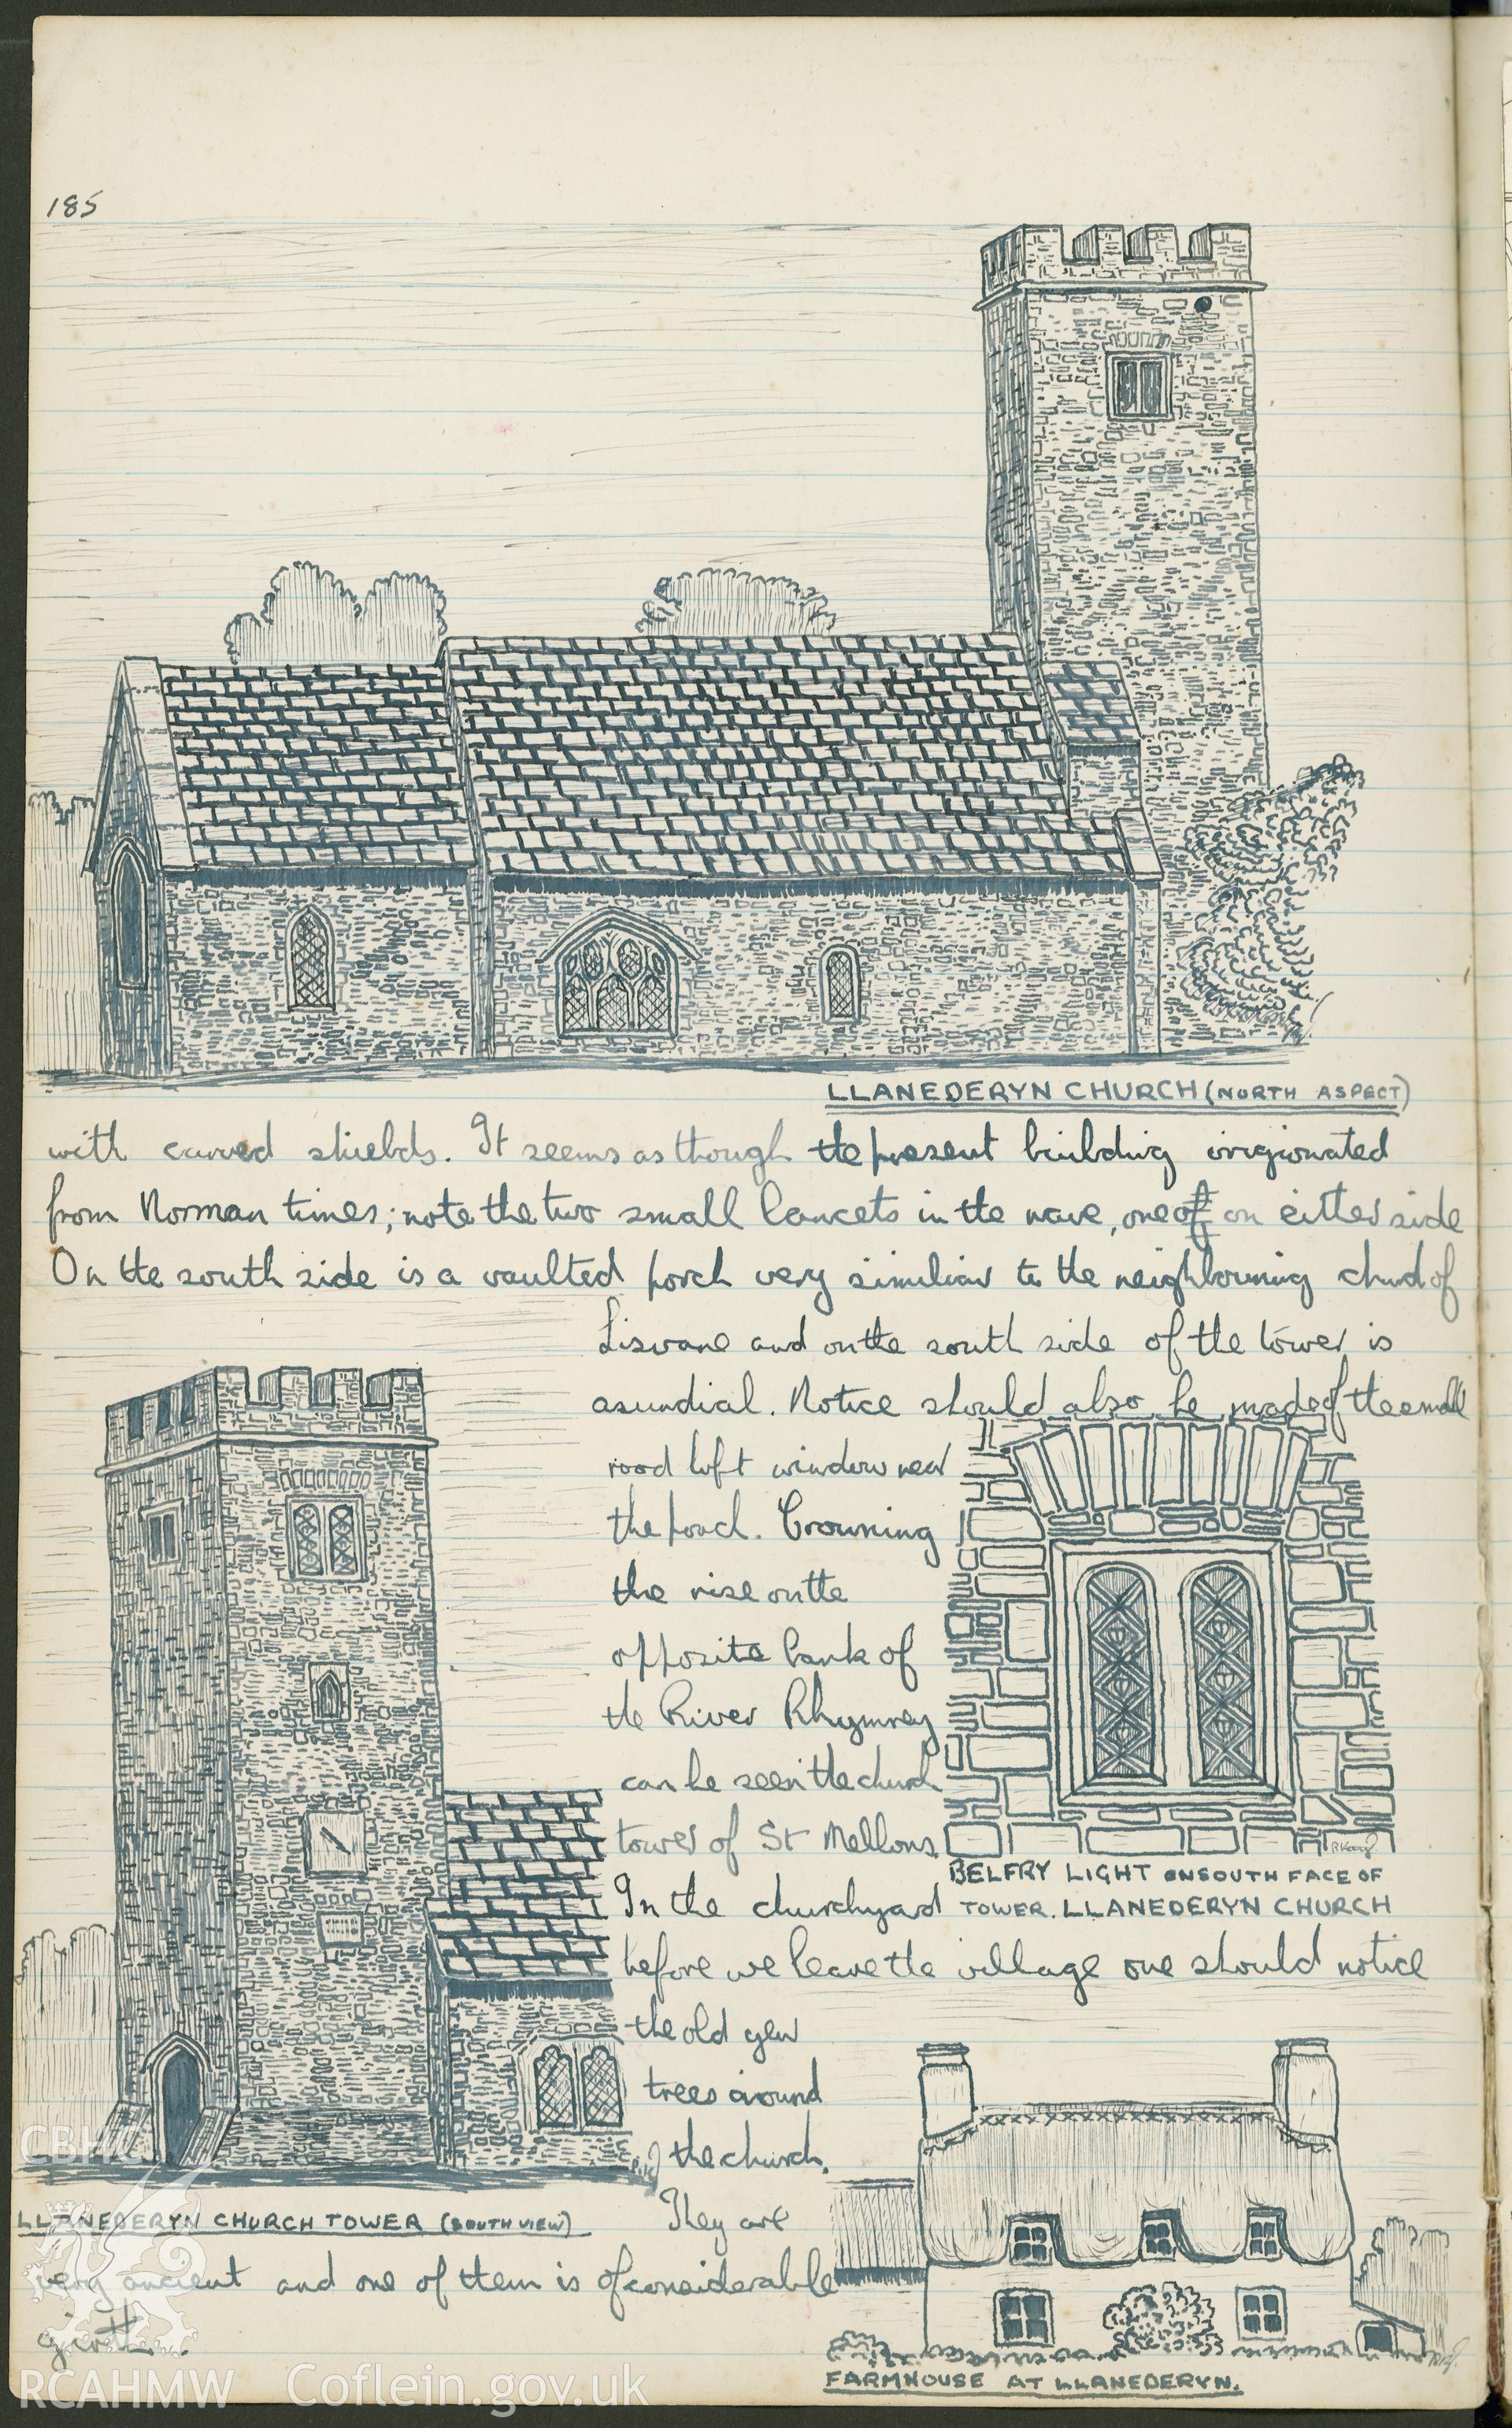 185
LLANEDERYN CHURCH (NORTH ASPECT)
with carved shields. It seems as though the present building origionated
from Norman times; note the two small lancets in the nave, one of on either side
On the south side is a vaulted porch very similiar to the neighbouring church of
Lisvane and on the south side of the tower is
a sundial. Notice should also be made of the small
rood loft window near
the porch. Crowning
the rise on the
opposite bank of
the River Rhymney
can be seen the church
tower of St Mellons.
BELFRY LIGHT ON SOUTH FACE OF
TOWER. LLANEDERYN CHURCH
In the churchyard
before we leave the village one should notice
the old yew
trees around
the church.
LLANEDERYN CHURCH TOWER (SOUTH VIEW)
They are
very ancient and one of them is of considerable
girth.
FARMHOUSE AT LLANEDERYN.
CBHC
RCAHMW Coflein.gov.uk